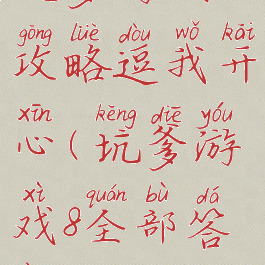 gōng lüè dòu wǒ kāi
攻略逗我开
xīn kēng diē yóu
心(坑爹游
xì quán bù dá
戏8全部答